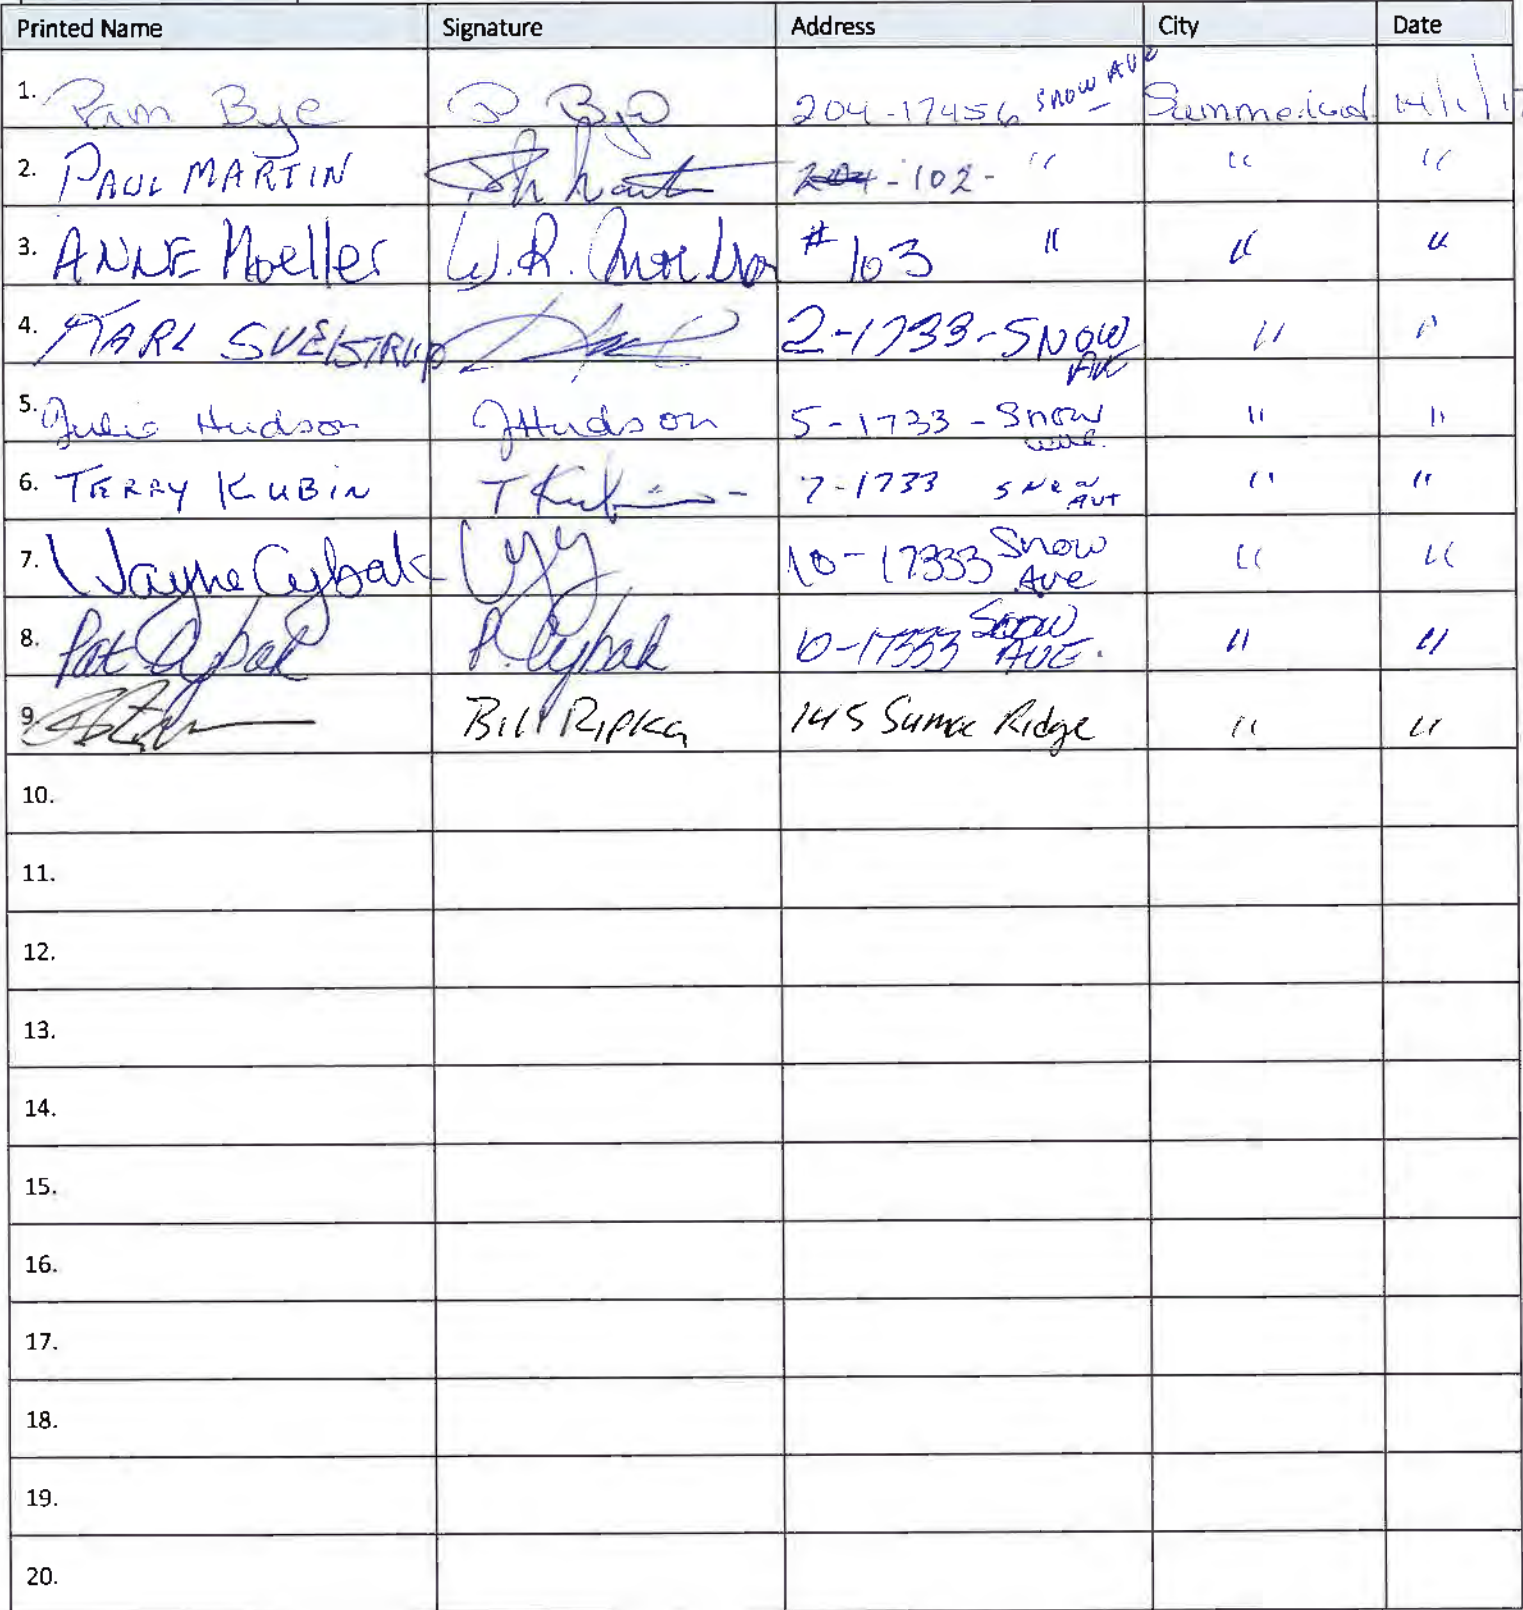 Printed Name Signature Address City Date
1. Pam Bye P Bye 204-17456 Snow Ave Summerland 14/1/17
2. PAUL MARTIN -102- " " "
3. ANNE Moeller # 103 " " "
4. KARL SVEISTRUP 2-1733-SNOW AVE " "
5. Julie Hudson JHudson 5-1733-Snow " "
6. TERRY KUBIN T Kubin 7-1733 SNOW AVE " "
7. Wayne Cybak 10-17333 Snow Ave " "
8. Pat Cybak P. Cybak 10-17333 Snow AVE. " "
9. Bill Ripka 145 Sumac Ridge " "
10.
11.
12.
13.
14.
15.
16.
17.
18.
19.
20.